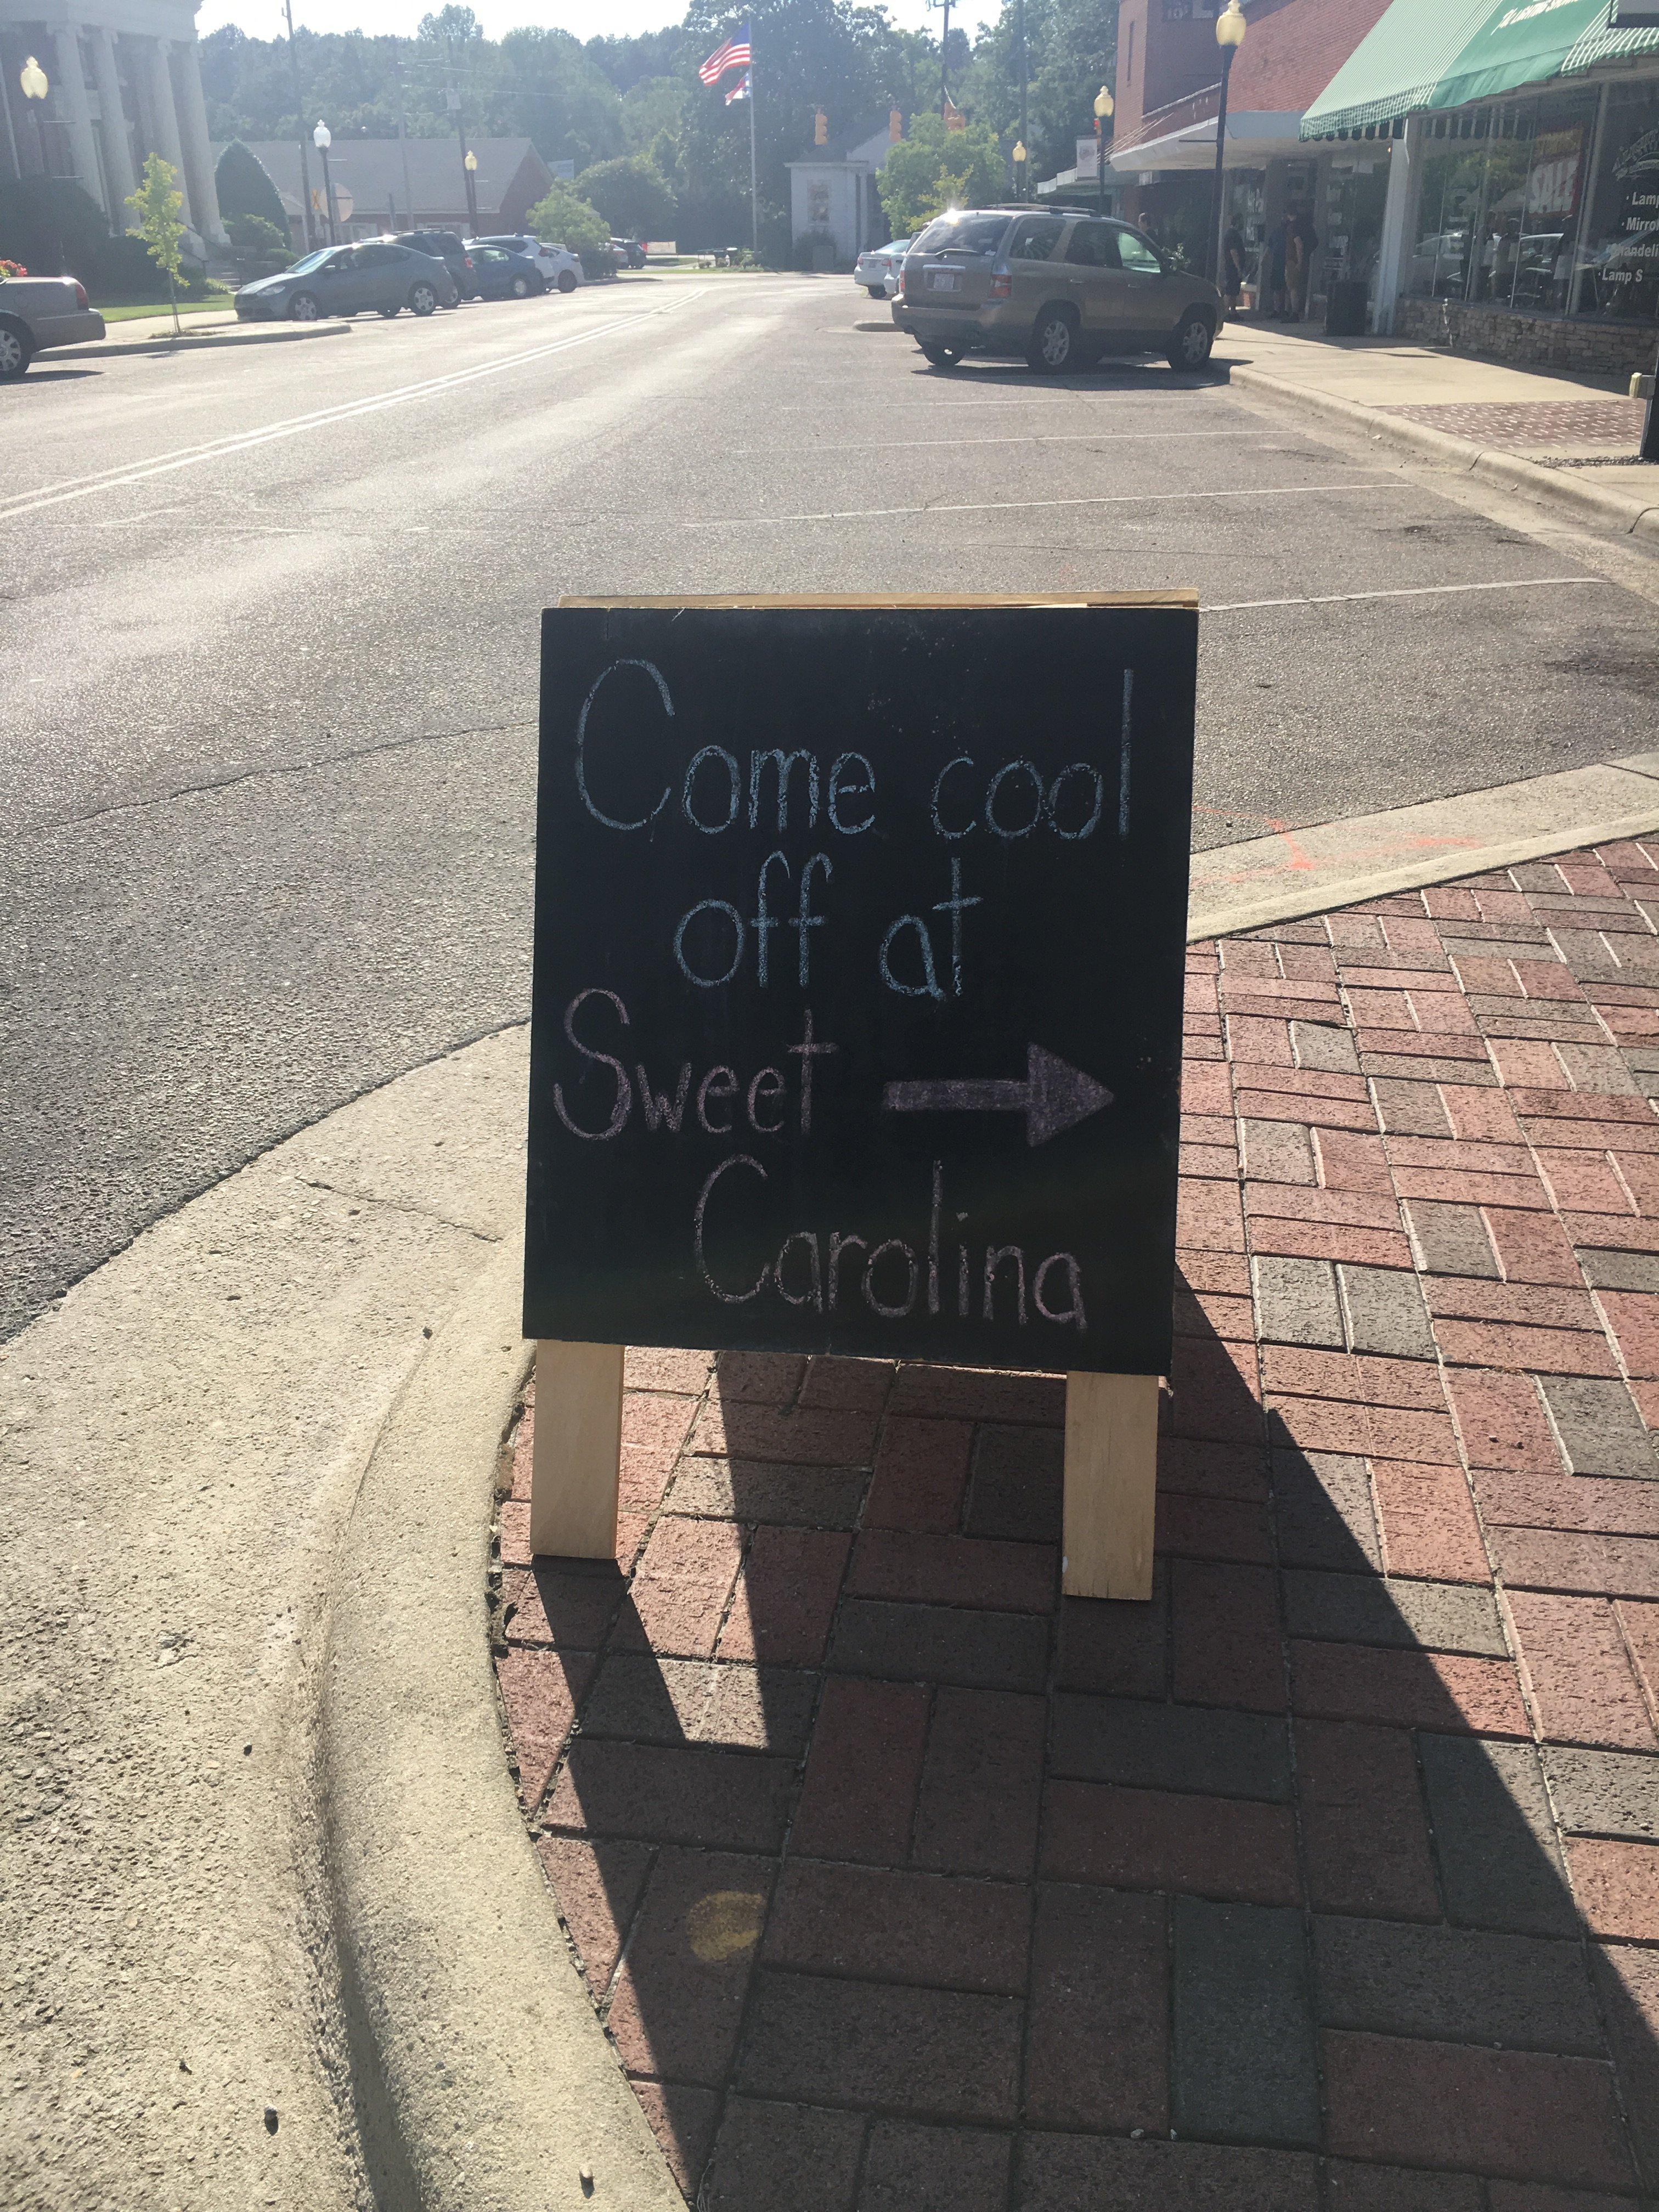 Come cool
off at
Sweet →
Carolina
SALE
· Lamp
· Mirro
handeli
· Lamp S